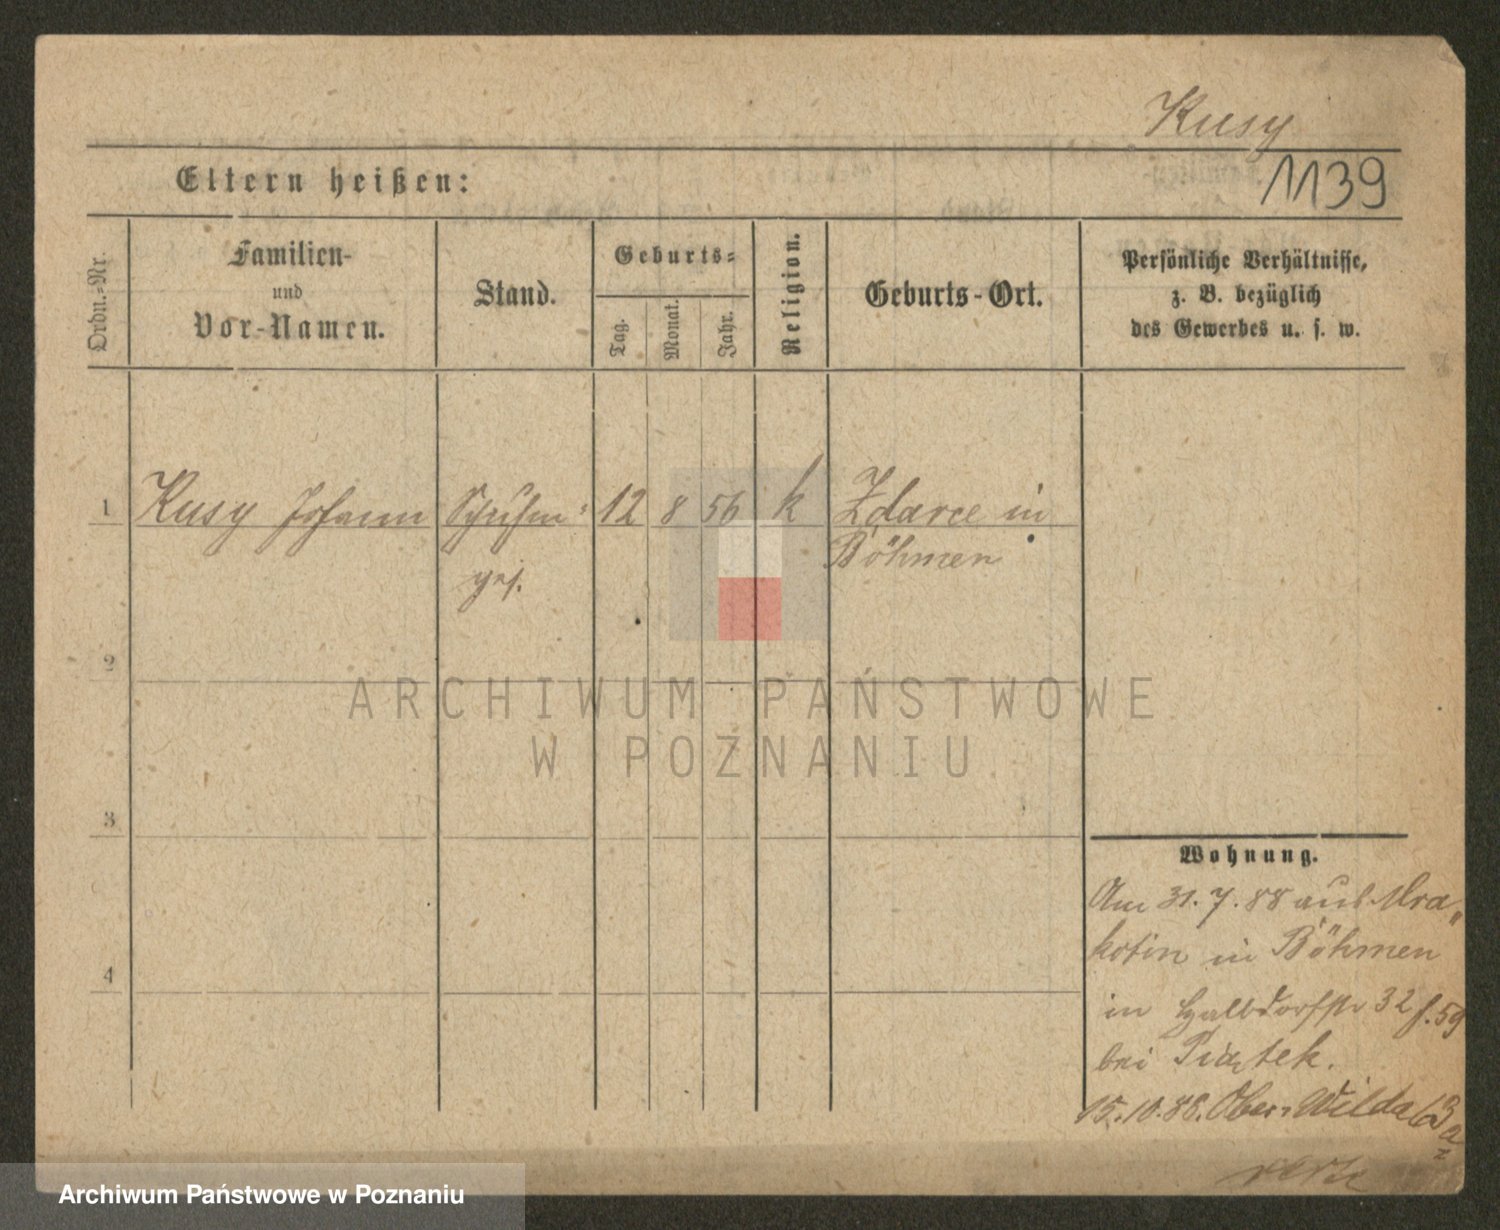 Kusy
1139
Eltern heißen:
Ordn.-Nr.
Familien-
und
Vor-Namen.
Stand.
Geburts-
Tag.
Monat.
Jahr.
Religion.
Geburts-Ort.
Persönliche Verhältnisse,
z. B. bezüglich
des Gewerbes u. s. w.
1 Kusy Johann Schuhm- 12 8 56 k Zdarce in
ges. Böhmen
2
ARCHIWUM PAŃSTWOWE
W POZNANIU
3
Wohnung.
Am 31.7.88 aus Mra-
kotin in Böhmen
4
in Halbdorfstr 32 f. 59
bei Piątek.
15.10.88. Ober-Wilda 63a
Archiwum Państwowe w Poznaniu